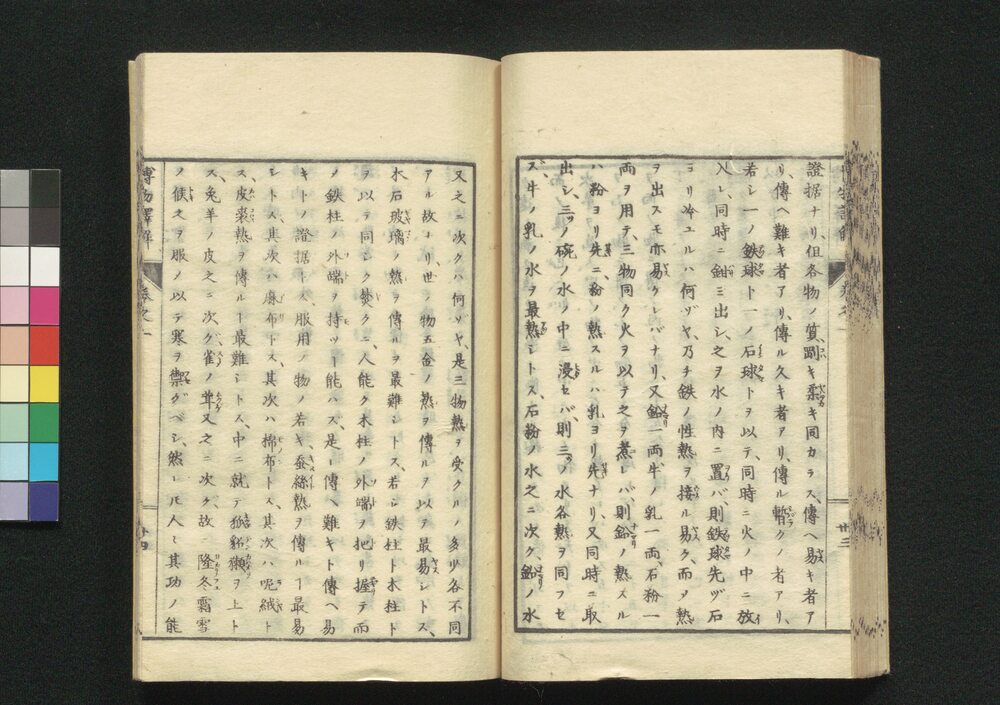 證據ナリ、但各物ノ質、剛キ柔キ同カラス、傳ヘ易キ者ア
リ、傳ヘ難キ者アリ、傳ル久キ者アリ、傳ル暫クノ者アリ、
若シ一ノ鉄球ト一ノ石球トヲ以テ、同時ニ火ノ中ニ放
入レ、同時ニ鉗ミ出シ、之ヲ水ノ内ニ置バ、則鉄球先ヅ石
ヨリ冷ユルハ何ゾヤ、乃チ鉄ノ性熱ヲ接ル易ク、而メ熱
ヲ出スモ亦易クレバナリ、又鉛一両牛ノ乳一両、石粉一
両ヲ用テ、三物同ク火ヲ以テ之ヲ煮レバ、則鉛ノ熱スル
ハ粉ヨリ先ニ、粉ノ熱スルハ乳ヨリ先ナリ、又同時ニ取
出シ、三ツノ碗ノ水ノ中ニ浸セバ、則三ノ水各熱ヲ同フセ
ズ、牛ノ乳ノ水ヲ最熱シトス、石粉ノ水之ニ次ク、鉛ノ水
廿三
又之ニ次クハ何ゾヤ、是三物熱ヲ受クルノ多少各不同
アル故ナリ、世ノ物五金ノ熱ヲ傳ルヲ以テ最易シトス、
木石玻璃ノ熱ヲ傳ルヲ最難シトス、若シ鉄柱ト木柱ト
ヲ以テ同シク焚クニ、人能ク木柱ノ外端ヲ把リ握テ而
メ鉄柱ノ外端ヲ持ツヿ能ハズ、是レ傳ヘ難キト傳ヘ易
キトノ證据トス、服用ノ物ノ若キ、蚕絲熱ヲ傳ルヿ最易
シトス、其次ハ麻布トス、其次ハ棉布トス、其次ハ呢絨ト
ス、皮裘熱ヲ傳ルヿ最難シトス、中ニ就テ狐貉獺ヲ上ト
ス、兔羊ノ皮之ニ次ク、雀ノ茸又之ニ次ク、故ニ隆冬霜雪
ノ候之ヲ服メ以テ寒ヲ禦グベシ、然レ𪜈人只其功ノ能
博物譯解 巻之一
廿四